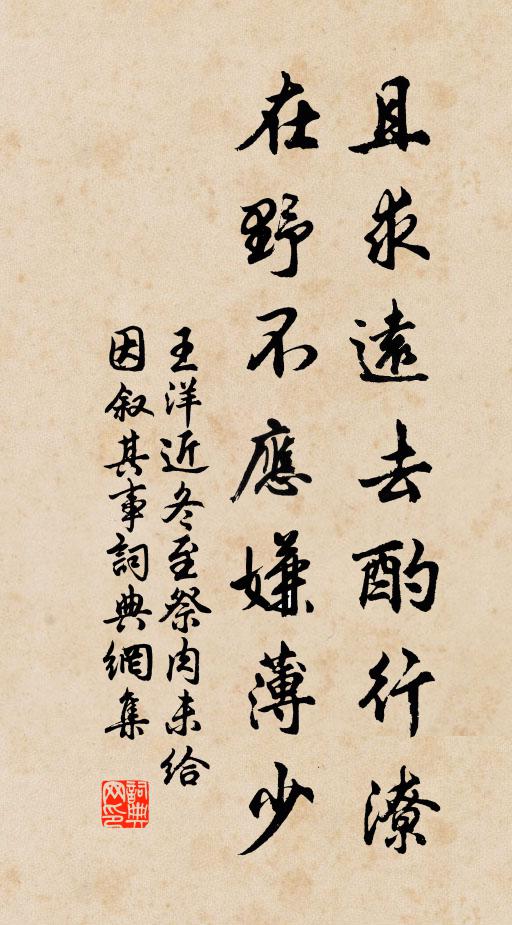 且求遠去酌行潦
在野不應嫌薄少
王洋近冬至祭肉未給
因叙其事詞典網集
詞典网印